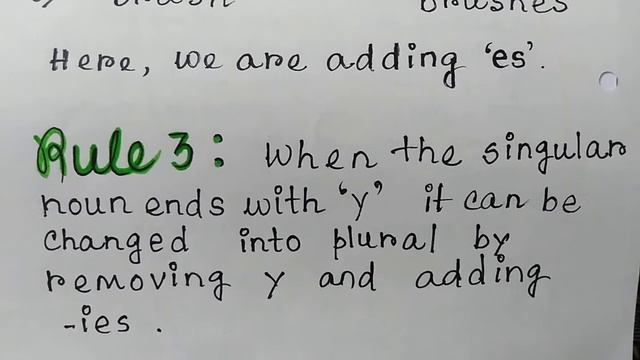 brushes
Here, we are adding 'es'.
Rule 3: When the singular
noun ends with 'y' it can be
changed into plural by
removing y and adding
-ies.